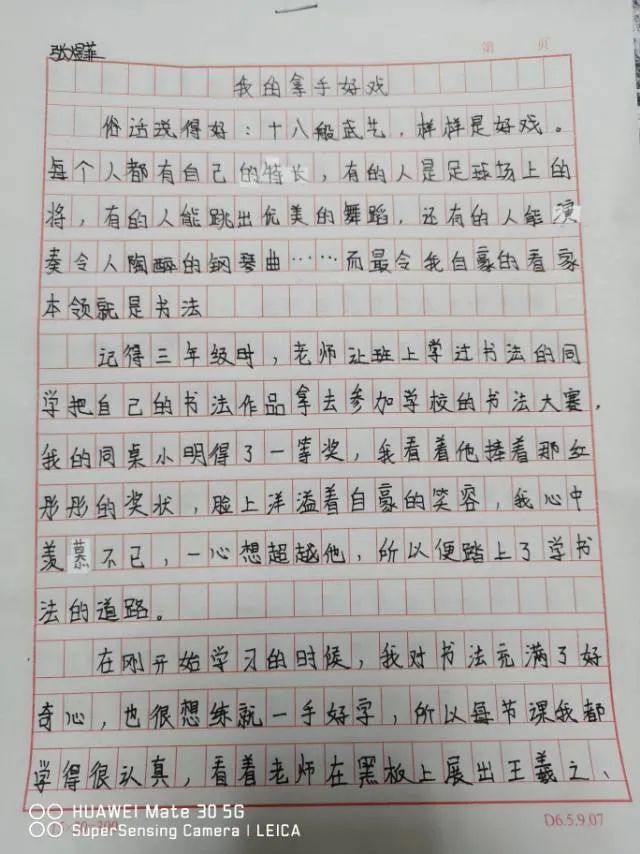 张煜菲
第 页
我的拿手好戏
俗话说得好：十八般武艺，样样是好戏。
每个人都有自己的特长，有的人是足球场上的
将，有的人能跳出优美的舞蹈，还有的人能演
奏令人陶醉的钢琴曲……而最令我自豪的看家
本领就是书法
记得三年级时，老师让班上学过书法的同
学把自己的书法作品拿去参加学校的书法大赛，
我的同桌小明得了一等奖，我看着他捧着那红
彤彤的奖状，脸上洋溢着自豪的笑容，我心中
羡慕不已，一心想超越他，所以便踏上了学书
法的道路。
在刚开始学习的时候，我对书法充满了好
奇心，也很想练就一手好字，所以每节课我都
学得很认真，看着老师在黑板上展出王羲之、
HUAWEI Mate 30 5G
SuperSensing Camera | LEICA
D6.5.9.07